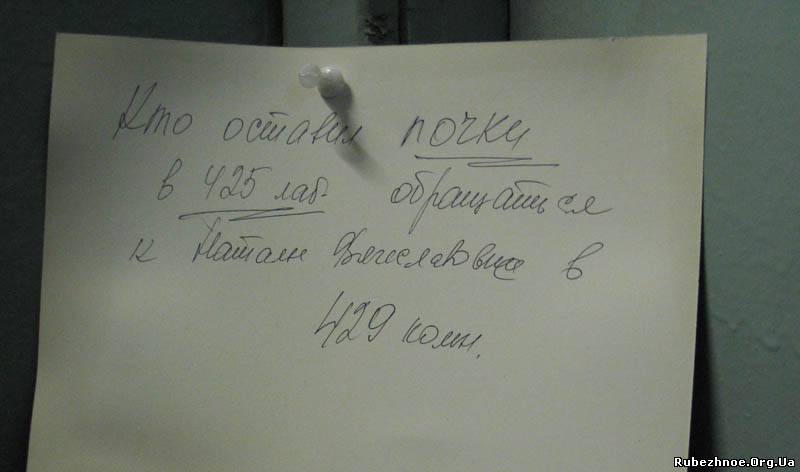 Кто оставил почки
в 425 лаб. обращаться
к Наталье Вячеславовне в
429 комн.
Rubezhnoe.Org.Ua